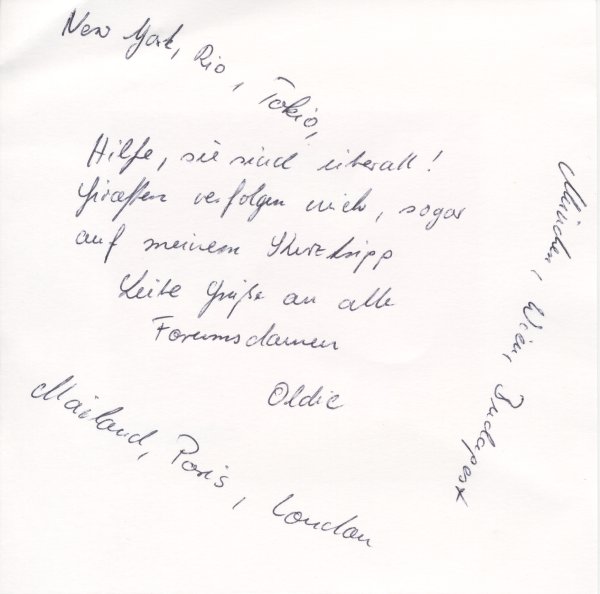 New York, Rio, Tokio,
Hilfe, sie sind überall!
Giraffen verfolgen mich, sogar
auf meinem Kurztripp
Liebe Grüße an alle
Forumsdamen
Oldie
München, Wien, Budapest
Mailand, Paris, London